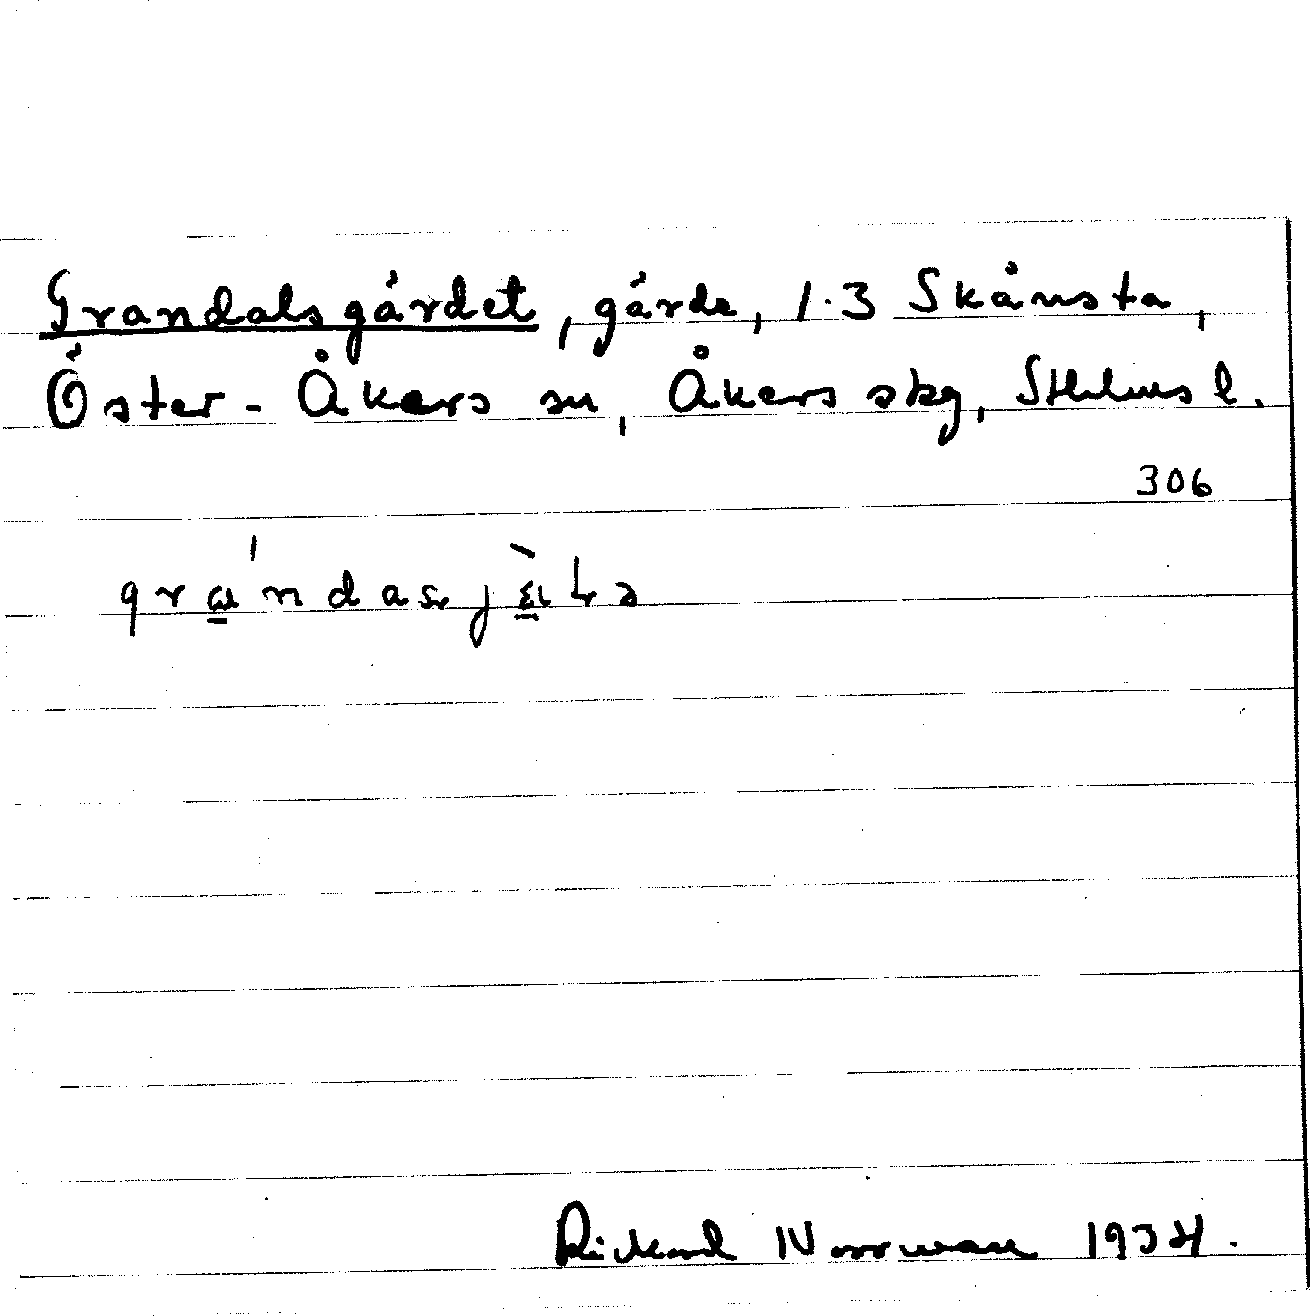 Grandalsgärdet, gärde, 1:3 Skånsta,
Öster-Åkers sn, Åkers skg, Sthlms l.
306
Rickard Norrman 1934.